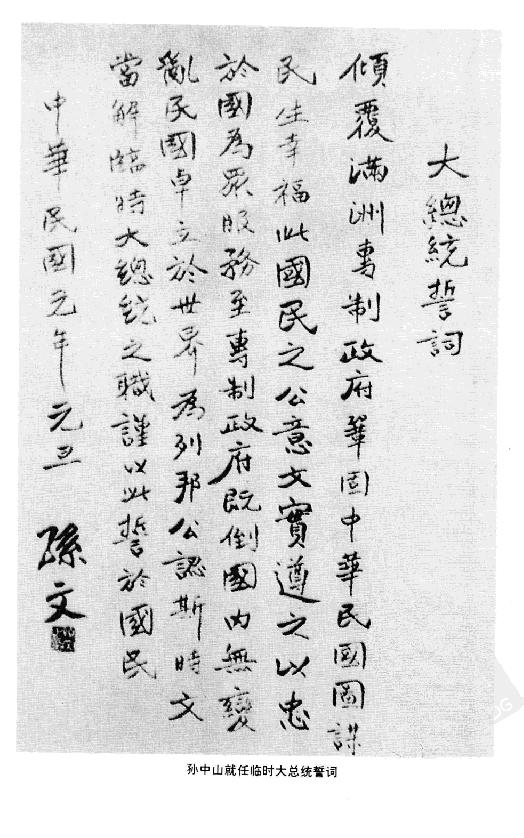 大總統誓詞
傾覆滿洲專制政府鞏固中華民國圖謀
民生幸福此國民之公意文實遵之以忠
於國為眾服務至專制政府既倒國內無變
亂民國卓立於世界為列邦公認斯時文
當解臨時大總統之職謹以此誓於國民
中華民國元年元旦
孫文
孙中山就任临时大总统誓词